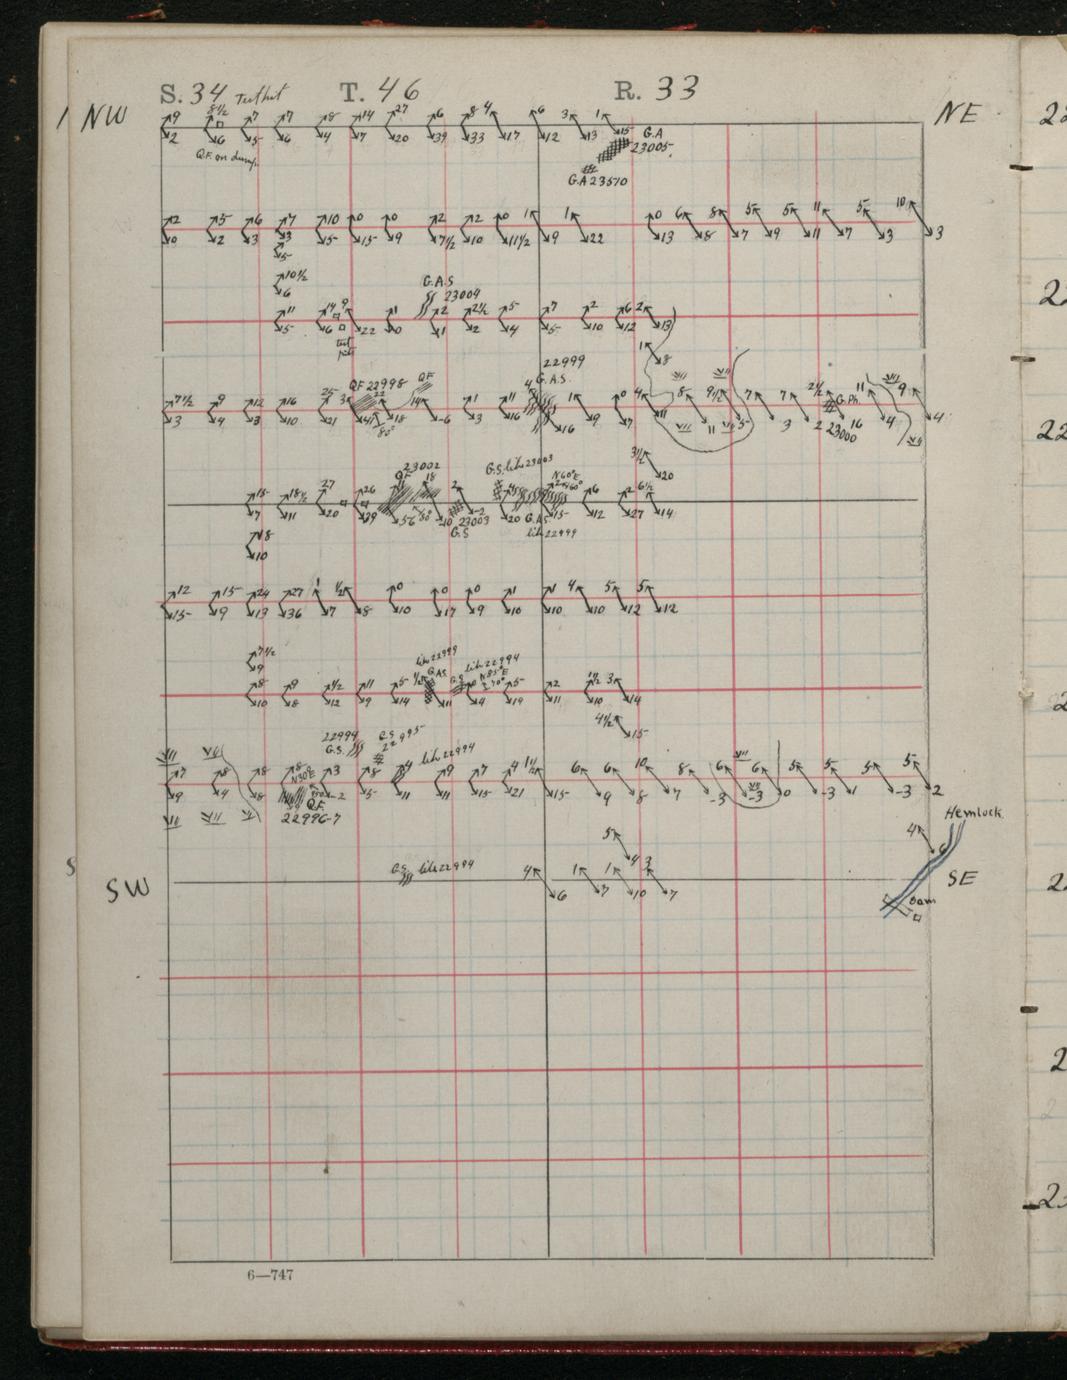 S. 34 T. 46 R. 33
NW NE
9 8½ 7 7 8 14 27 6 8 4 6 3 1
2 6 5 6 4 7 20 39 33 17 12 13 15
Q.F. on dump
G.A
23005
G.A 23510
2 5 6 7 10 0 0 2 2 0 1 1 0 6 8 5 5 11 5 10
0 2 3 3 5 15 9 7½ 10 11½ 9 22 13 8 7 9 11 7 3 3
5
10½
6
G.A.S
23004
11 14 9 1 2 2½ 5 7 2 6 2
5 6 22 0 1 2 4 5 10 12 13
test
pits
1
8
22999
G.A.S.
QF 22998 QF
7½ 9 12 16 25 3 22 14 1 11 4 1 0 4 8 9½ 7 7 2½ 11 9
3 4 3 10 21 41 18 -6 3 16 16 9 7 11 11 5 3 2 16 4 4
80°
G.Ph.
23000
3½
20
23002
QF
G.S. like 23003
N60°E
15 18½ 27 26 18 2 6 2 6½
7 11 20 39 56 80° -10 -2 20 15 12 27 14
23003
G.S
G.A.S
like 22999
18
10
12 15 24 27 1 ½ 0 0 0 1 1 4 5 5
15 9 13 36 7 8 10 17 9 10 10 10 12 12
7½
9
like 22999
G.A.S.
G.S. like 22994
N85°E
70°
8 9 ½ 11 5 ½ 5 2 1½ 3
10 8 12 9 14 11 4 19 11 10 14
4½
15
22994
G.S.
G.S.
22995
like 22994
7 8 8 8 3 8 4 9 7 4 1½ 6 6 10 8 6 6 5 5 5 5
N30°E
9 4 8 -2 5 11 11 15 21 15 9 8 7 -3 -3 0 -3 1 -3 2
Q.F.
22996-7
Hemlock
5 4
4 6
G.S. like 22994
4 1 1 3
6 7 10 7
SW SE
Dam
6—747